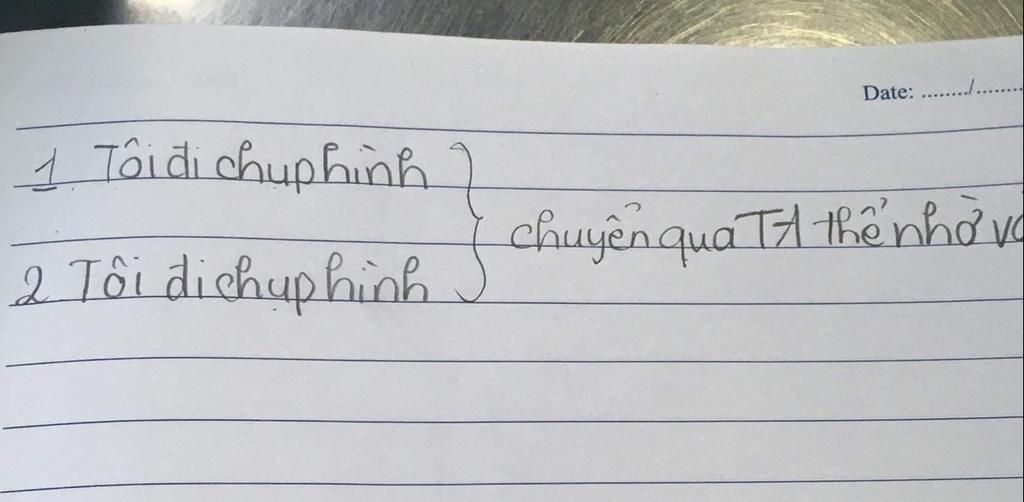 Date: ......../........
1 Tôi đi chup hình
chuyển qua TA thể nhờ
2 Tôi đi chụp hình